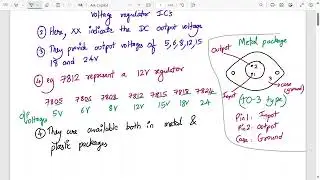 voltage regulator ICs
② Here, XX indicate the DC output voltage
③ They provide output voltages of 5,6,8,12,15
18 and 24V
④ eg 7812 represent a 12V regulator
7805 7806 7808 7812 7815 7818 7824
o/p voltages 5V 6V 8V 12V 15V 18V 24
④ They are available both in metal &
plastic packages
Metal package
Output
2
1
3
Input
case (ground)
(TO-3 type)
Pin 1: Input
Pin 2: Output
Case: Ground